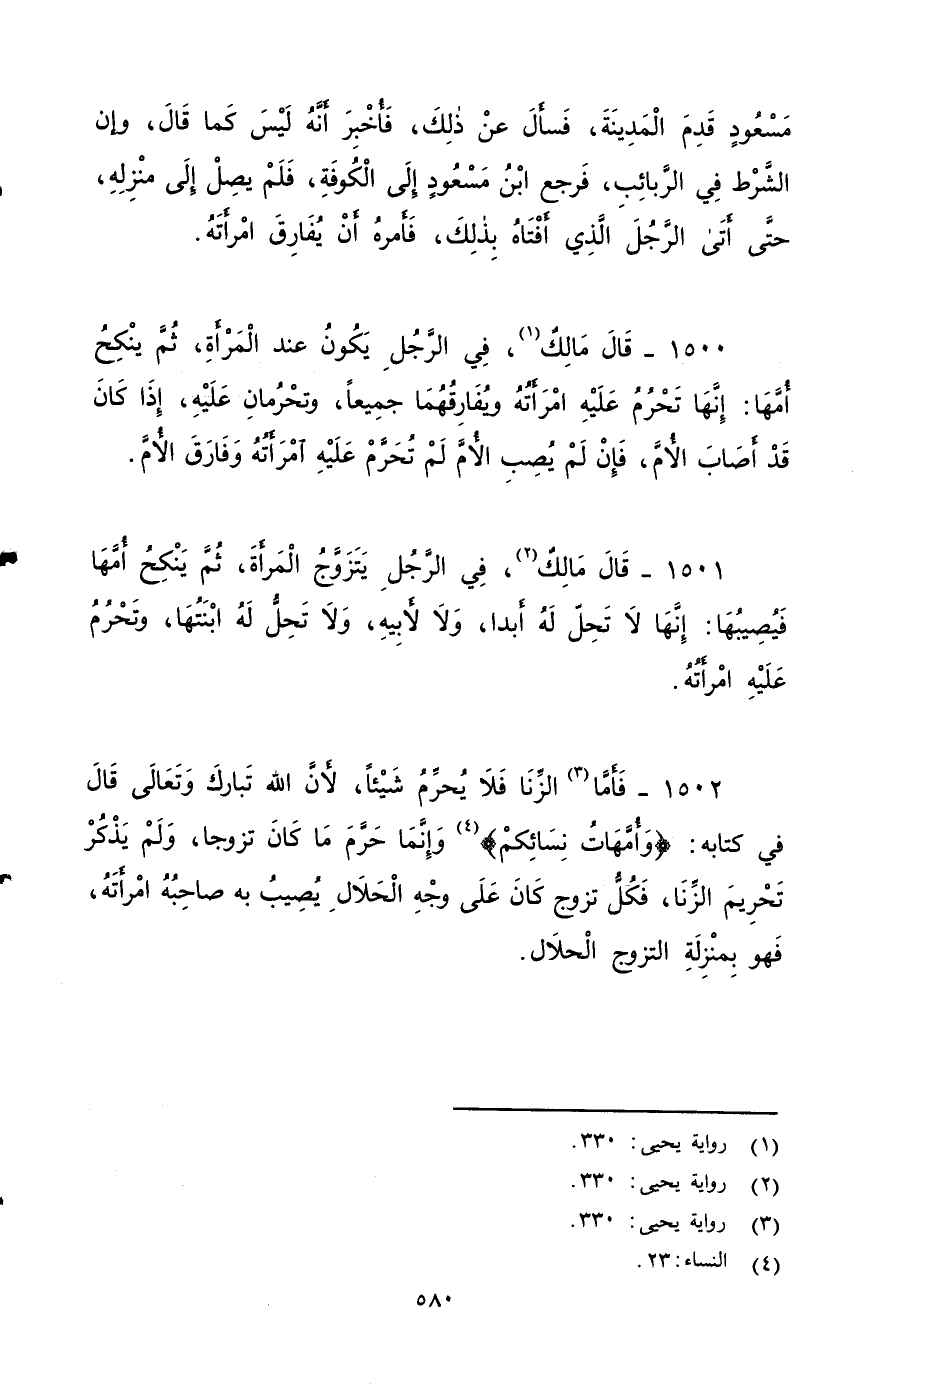 مَسْعُودٍ قَدِمَ الْمَدِينَةَ، فَسأَلَ عنْ ذٰلِكَ، فَأُخْبِرَ أَنَّهُ لَيْسَ كَما قَالَ، وإن
الشَّرْط فِي الرَّبائِبِ، فَرجع ابْنُ مَسْعُودٍ إِلَى الْكُوفَةِ، فَلَمْ يصِلْ إِلَى منْزِلِهِ،
حتَّى أَتَىٰ الرَّجُلَ الَّذِي أَفْتَاهُ بِذٰلِكَ، فَأَمرهُ أَنْ يُفَارِقَ امْرأَتَهُ.
١٥٠٠ ـ قَالَ مَالِكٌ(١)، فِي الرَّجُلِ يَكُونُ عند الْمَرْأَةِ، ثُمَّ ينْكِحُ
أُمَّهَا: إِنَّهَا تَحْرُمُ عَلَيْهِ امْرَأَتُهُ ويُفَارِقُهُمَا جمِيعاً، وتحْرُمانِ عَلَيْهِ، إِذَا كَانَ
قَدْ أَصَابَ الأُمَّ، فَإِنْ لَمْ يُصِبِ الأُمَّ لَمْ تُحَرَّمْ عَلَيْهِ آمْرَأَتُهُ وَفَارَقَ الأُمَّ.
١٥٠١ ـ قَالَ مَالِكٌ(٢)، فِي الرَّجُلِ يَتَزَوَّجُ الْمَرأَةَ، ثُمَّ يَنْكِحُ أُمَّهَا
فَيُصِيبُهَا: إِنَّهَا لَا تَحِلّ لَهُ أَبدا، وَلَا لأَبِيهِ، وَلَا تَحِلُّ لَهُ ابْنَتُهَا، وتَحْرُمُ
عَلَيْهِ امْرأَتُهُ.
١٥٠٢ ـ فَأَمَّا(٣) الزِّنَا فَلَا يُحرِّمُ شَيْئاً، لأَنَّ الله تَبارك وَتَعَالَى قَالَ
في كتابه: ﴿وَأُمَّهَاتُ نِسَائِكمْ﴾(٤) وَإِنَّمَا حَرَّمَ مَا كَانَ تزوجا، وَلَمْ يَذْكُرْ
تَحْرِيمَ الزِّنَا، فَكُلُّ تزوج كَانَ عَلَى وجْهِ الْحَلَالِ يُصِيبُ به صاحِبُهُ امْرأَتَهُ،
فَهو بِمنْزِلَةِ التزوج الْحلَال.
(١) رواية يحيى: ٣٣٠.
(٢) رواية يحيى: ٣٣٠.
(٣) رواية يحيى: ٣٣٠.
(٤) النساء: ٢٣.
٥٨٠